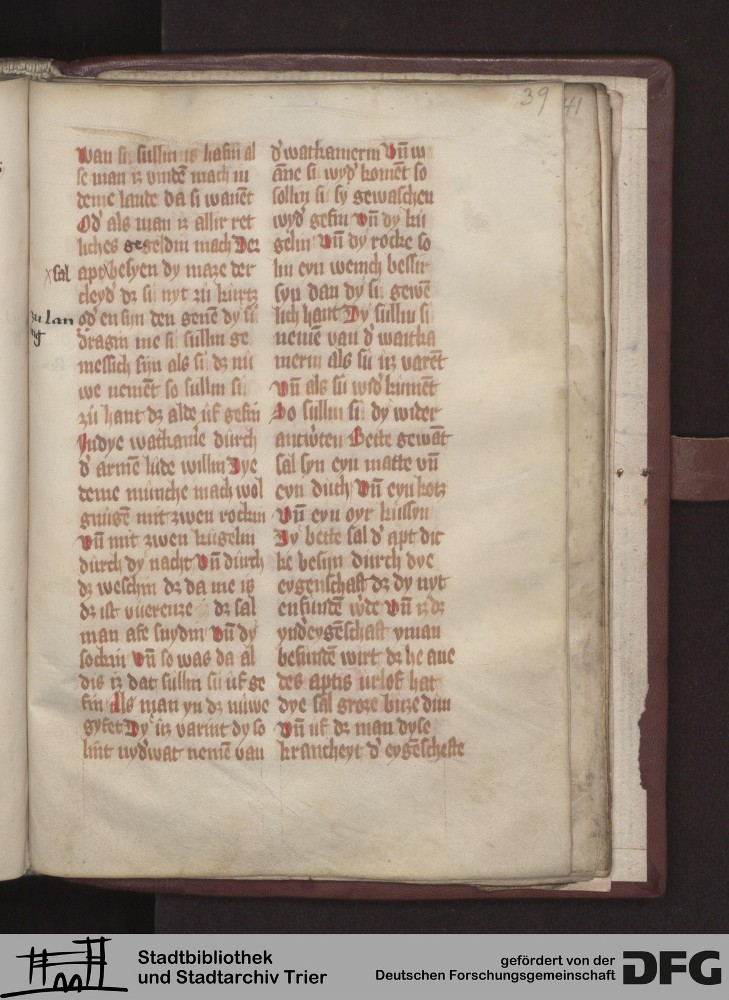 39
41
wan si sullin is hafin al
se man iz vindē mach in
deme lande da si wanēt
Od' als man iz allir ret
liches gegeldin mach Der
sal
apt besyen dy maze der
cleyd' dz si nyt zu kurtz
zu lan
od' en sijn den genē dy si
dragin me si sullin ge
messich sijn als si dz nu
we nemēt so sullin si
zu hant dz alde uf gefin
Jndye watkam'e durch
d' armē lude willin Dye
deme munche mach wol
gnugē mit zwen rockin
Vn̄ mit zwen kugelin
durch dy nacht Vn̄ durch
dz weschin dz da me is
dz ist dz sal
man afe snydin Vn̄ dy
sockin Vn̄ so was da al
dis iz dat sullin sii uf ge
fin Als man yn dz nuwe
gyfet Dy iiz varint dy so
lint nyd'wat nemē van
d' watkamerin Vn̄ w
āne si wyd' komēt so
sollin si sy gewaschen
wyd' gefin Vn̄ dy ku
gelin Vn̄ dy rocke so
lin eyn wenich bessir
syn dan dy si gewē
lich hant Dy sullin si
nemē van d' watka
merin als sii uz varēt
Vn̄ als sii wid' kumēt
So sullin si dy wider
antw'ten Bette gewāt
sal syn eyn matte vn̄
eyn duch Vn̄ eyn kotz
Vn̄ eyn oyr kussyn
Dy bette sal d' apt dic
ke besijn durch dye
eygenschaft dz dy nyt
enfundē w'de Vn̄ iz dz
ynd'eygēschaft yman
befundē wirt dz he ane
des aptis urlof hat
dye sal groze buze dun
Vn̄ uf dz man dyse
krancheyt d' eygēscheffte
Stadtbibliothek
und Stadtarchiv Trier
gefördert von der
Deutschen Forschungsgemeinschaft
DFG